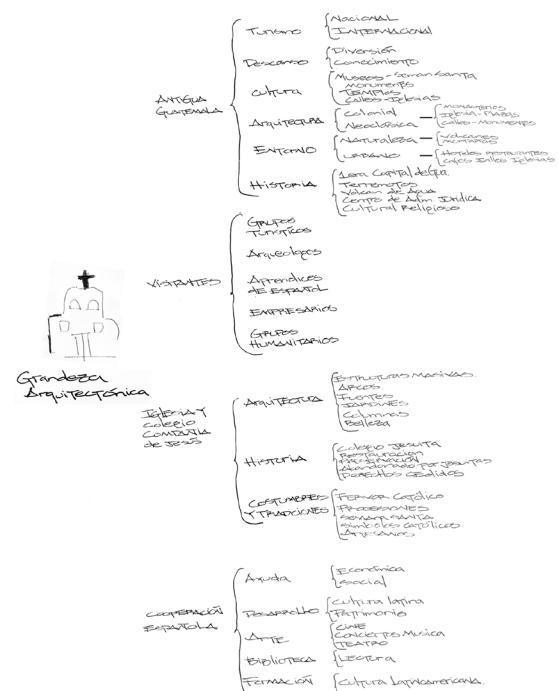 Turismo
Nacional
INTERNACIONAL
Descanso
Diversión
Conocimiento
ANTIGUA
GUATEMALA
Cultura
Museos - Semana Santa
Monumentos
Templos
Calles - Iglesias
Arquitectura
Colonial
Neoclásica
Monasterios
Iglesia - PLAZAS
Calles - Monumentos
ENTORNO
Naturaleza
Volcanes
Montañas
URBANO
Hoteles Restaurantes
Cafés Calles Iglesias
HISTORIA
1era Capital de Gua.
Terremotos
Volcan de Agua
Centro de Adm Jurídica
Cultural Religioso
VISITANTES
GRUPOS
Turísticos
Arqueologos
Aprendices
DE ESPAÑOL
EMPRESARIOS
GRUPOS
HUMANITARIOS
Grandeza
Arquitectónica
IGLESIA Y
COLEGIO
COMPAÑIA
de JESÚS
Arquitectura
Estructuras Masivas
ARCOS
Fuentes
JARDINES
Columnas
Belleza
Historia
Colegio Jesuita
Restauracion
Abandonado por Jesuitas
Derechos Cedidos
COSTUMBRES
Y TRADICIONES
FERVOR Católico
PROCESIONES
SEMANA SANTA
Símbolos Católicos
ARTESANOS
COOPERACIÓN
ESPAÑOLA
Ayuda
Económica
Social
Desarrollo
Cultura latina
Patrimonio
Arte
CINE
Conciertos Musica
TEATRO
BIBLIOTECA
LECTURA
FORMACIÓN
Cultura Latinoamericana.